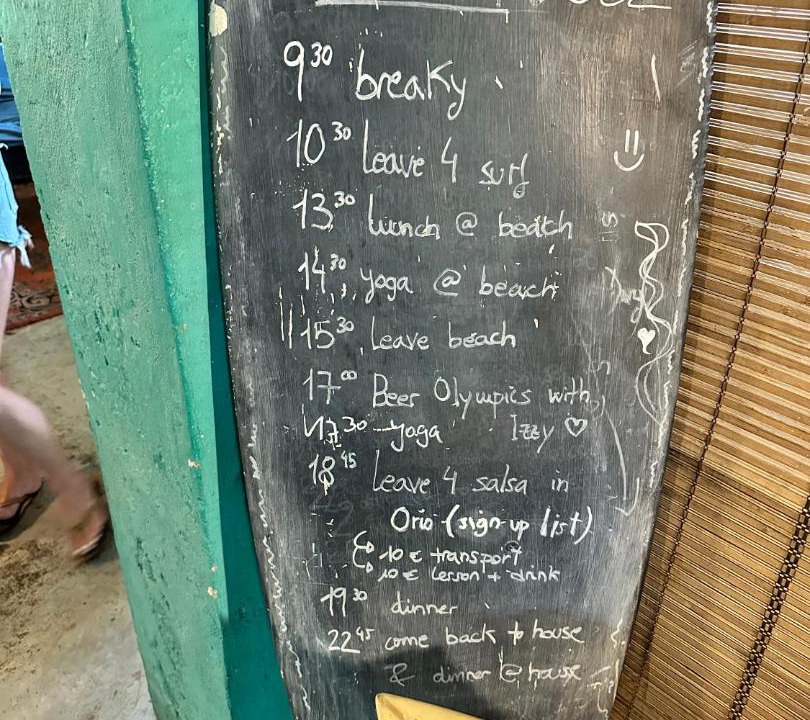 9³⁰ breaky
10³⁰ Leave 4 surf
13³⁰ Lunch @ beach
14³⁰ yoga @ beach
15³⁰ Leave beach
17⁰⁰ Beer Olympics with
Izzy ♡
17³⁰ yoga
18⁴⁵ Leave 4 salsa in
Orio (sign-up list)
10 € transport
10 € lesson + drink
19³⁰ dinner
22⁴⁵ come back to house
& dinner @ house